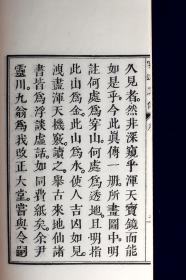 久見者然非深窺乎渾天寶鏡而能
如是乎今此真傳一冊所畫圖中明
註何處為穿山何處為透地且明指
此山為金此山為水使人吉凶如見
洩盡渾天機竅讀之舉古來地仙諸
書皆為浮談虛話如同費紙矣余尹
靈川九翁為我改正大堂嘗與令嗣